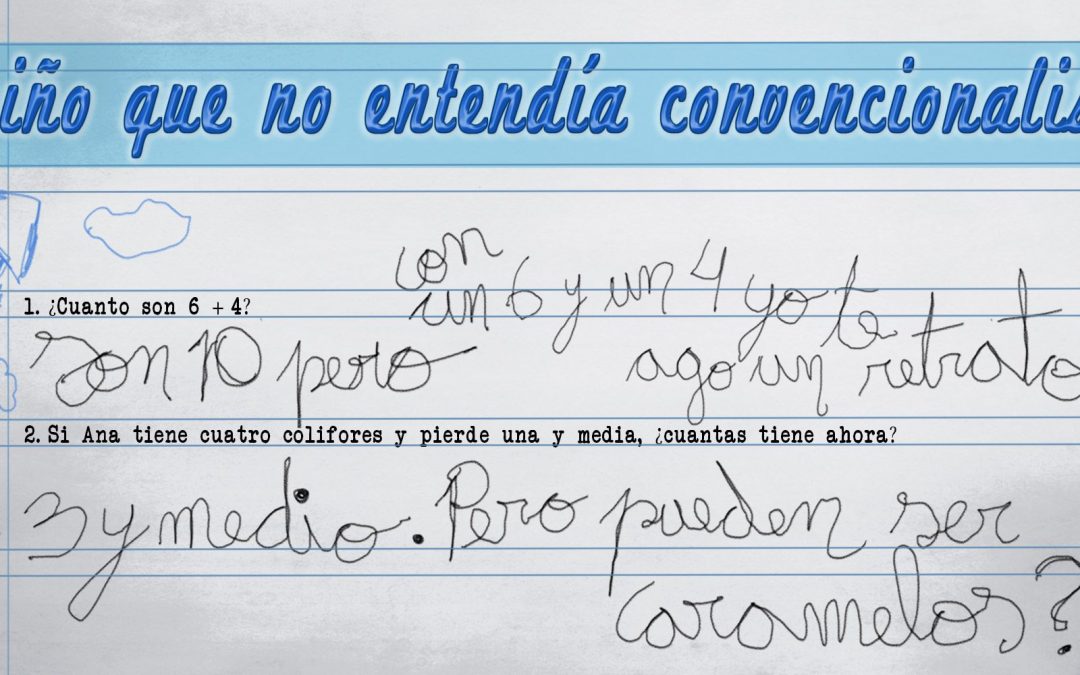 iño que no entendía convencionalis
1. ¿Cuanto son 6 + 4?
son 10 pero
con
un 6 y un 4 yo te
ago un retrato
2. Si Ana tiene cuatro colifores y pierde una y media, ¿cuantas tiene ahora?
3 y medio. Pero pueden ser
caramelos?